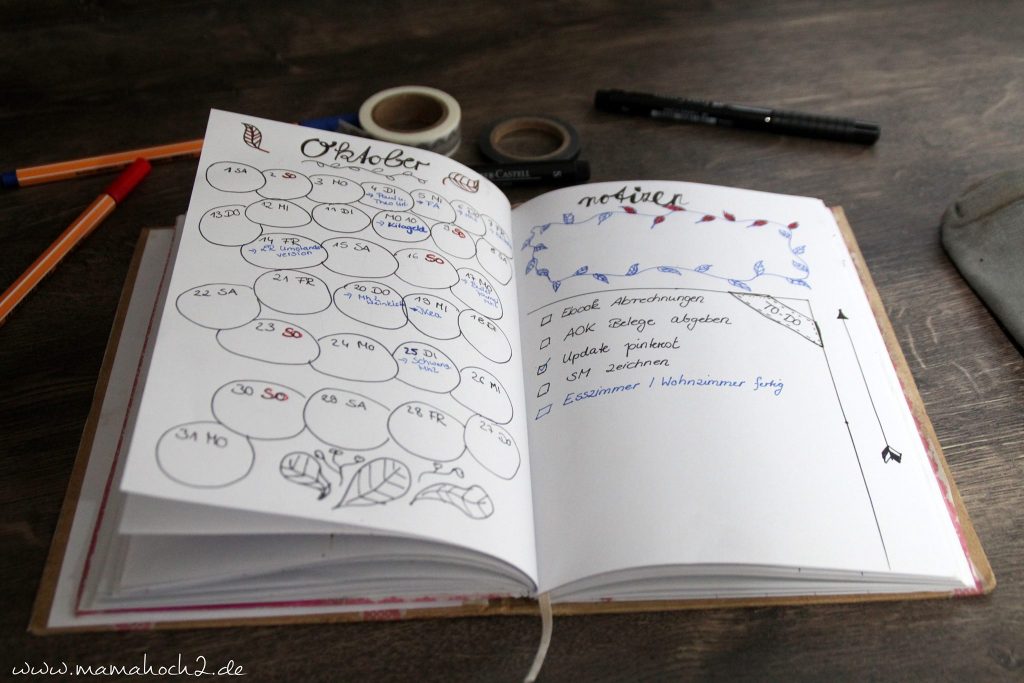 Oktober
1 SA
2 SO
3 MO
4 DI
5 MI
→ FA
13 DO
12 MI
11 DI
MO 10
→ Kitageld
9 SO
8 SA
14 FR
15 SA
16 SO
17 MO
22 SA
21 FR
20 DO
19 MI
→ Ikea
18 DI
23 SO
24 MO
25 DI
26 MI
30 SO
29 SA
28 FR
27 DO
31 MO
notizen
TO-DO
Ebook Abrechnungen
AOK Belege abgeben
Update pinkrot
SM zeichnen
Esszimmer / Wohnzimmer fertig
CASTELL
www.mamahoch2.de